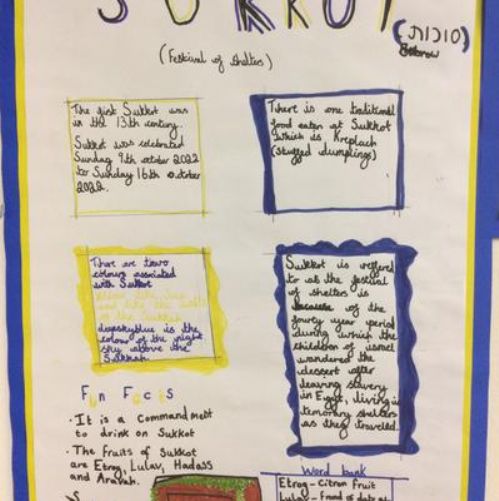 SUKKOT
(סוכות)
Hebrew
(Festival of shelters)
The first Sukkot was
in the 13th century.
Sukkot was celebrated
Sunday 9th october 2022
to Sunday 16th October
2022.
There is one traditional
food eaten at Sukkot
which is Kreplach
(stuffed dumplings)
There are two
colours associated
with Sukkot
deepskyblue is the
colour of the night
sky above the
Sukkah
Sukkot is reffered
to as the festival
of shelters is
because of the
fourty year period
during which the
children of israel
wandered the
dessert after
leaving slavery
in Egypt, living in
temorary shelters
as they traveled.
Fun Facts
· It is a commandment
to drink on Sukkot
· The fruits of Sukkot
are Etrog, Lulav, Hadass
and Aravah.
Word bank
Etrog - Citron fruit
Lulav - frond of date palm